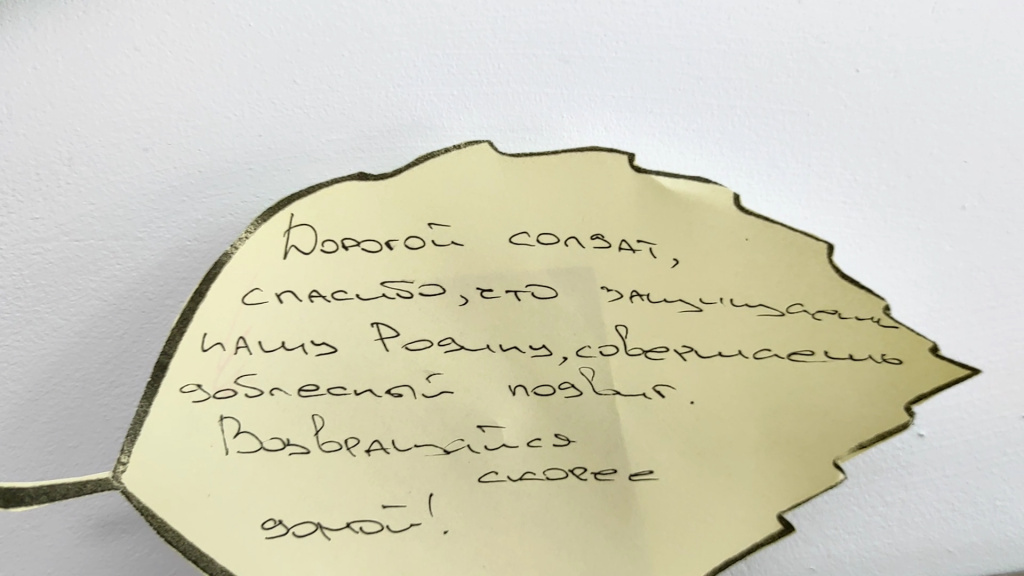 Дорогой солдат,
спасибо, что защищаешь
нашу Родину, совершаешь
доблесный подвиг.
Возвращайся
скорее
домой!